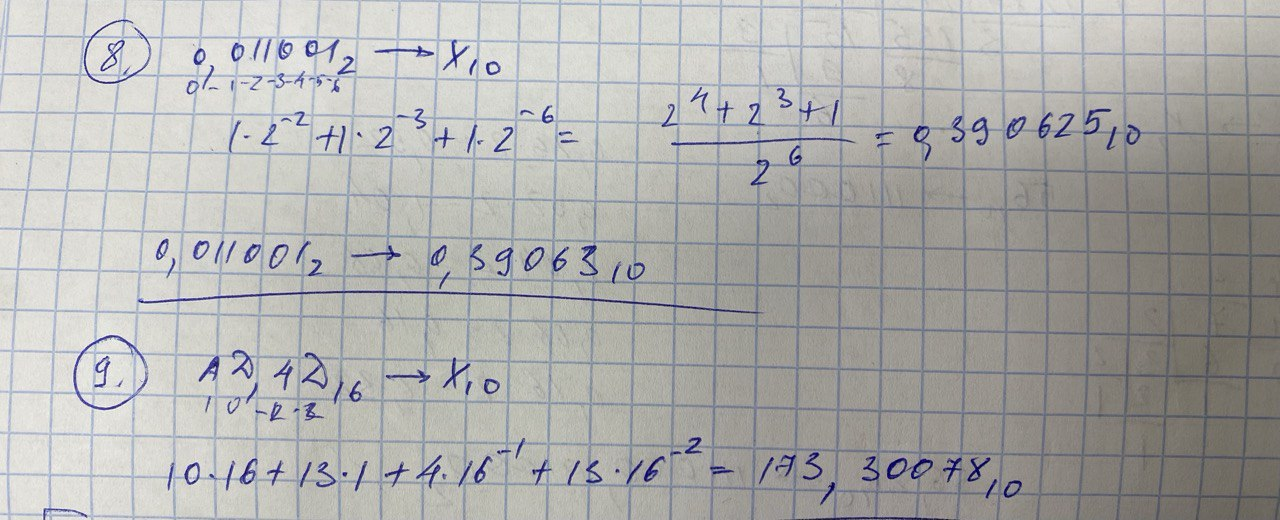 8. 0,011001₂ → X₁₀
0 -1-2-3-4-5-6
1·2⁻² + 1·2⁻³ + 1·2⁻⁶ = (2⁴ + 2³ + 1)/2⁶ = 0,390625₁₀
0,011001₂ → 0,39063₁₀
9. AD,4D₁₆ → X₁₀
1 0 -1 -2
10·16 + 13·1 + 4·16⁻¹ + 13·16⁻² = 173,30078₁₀